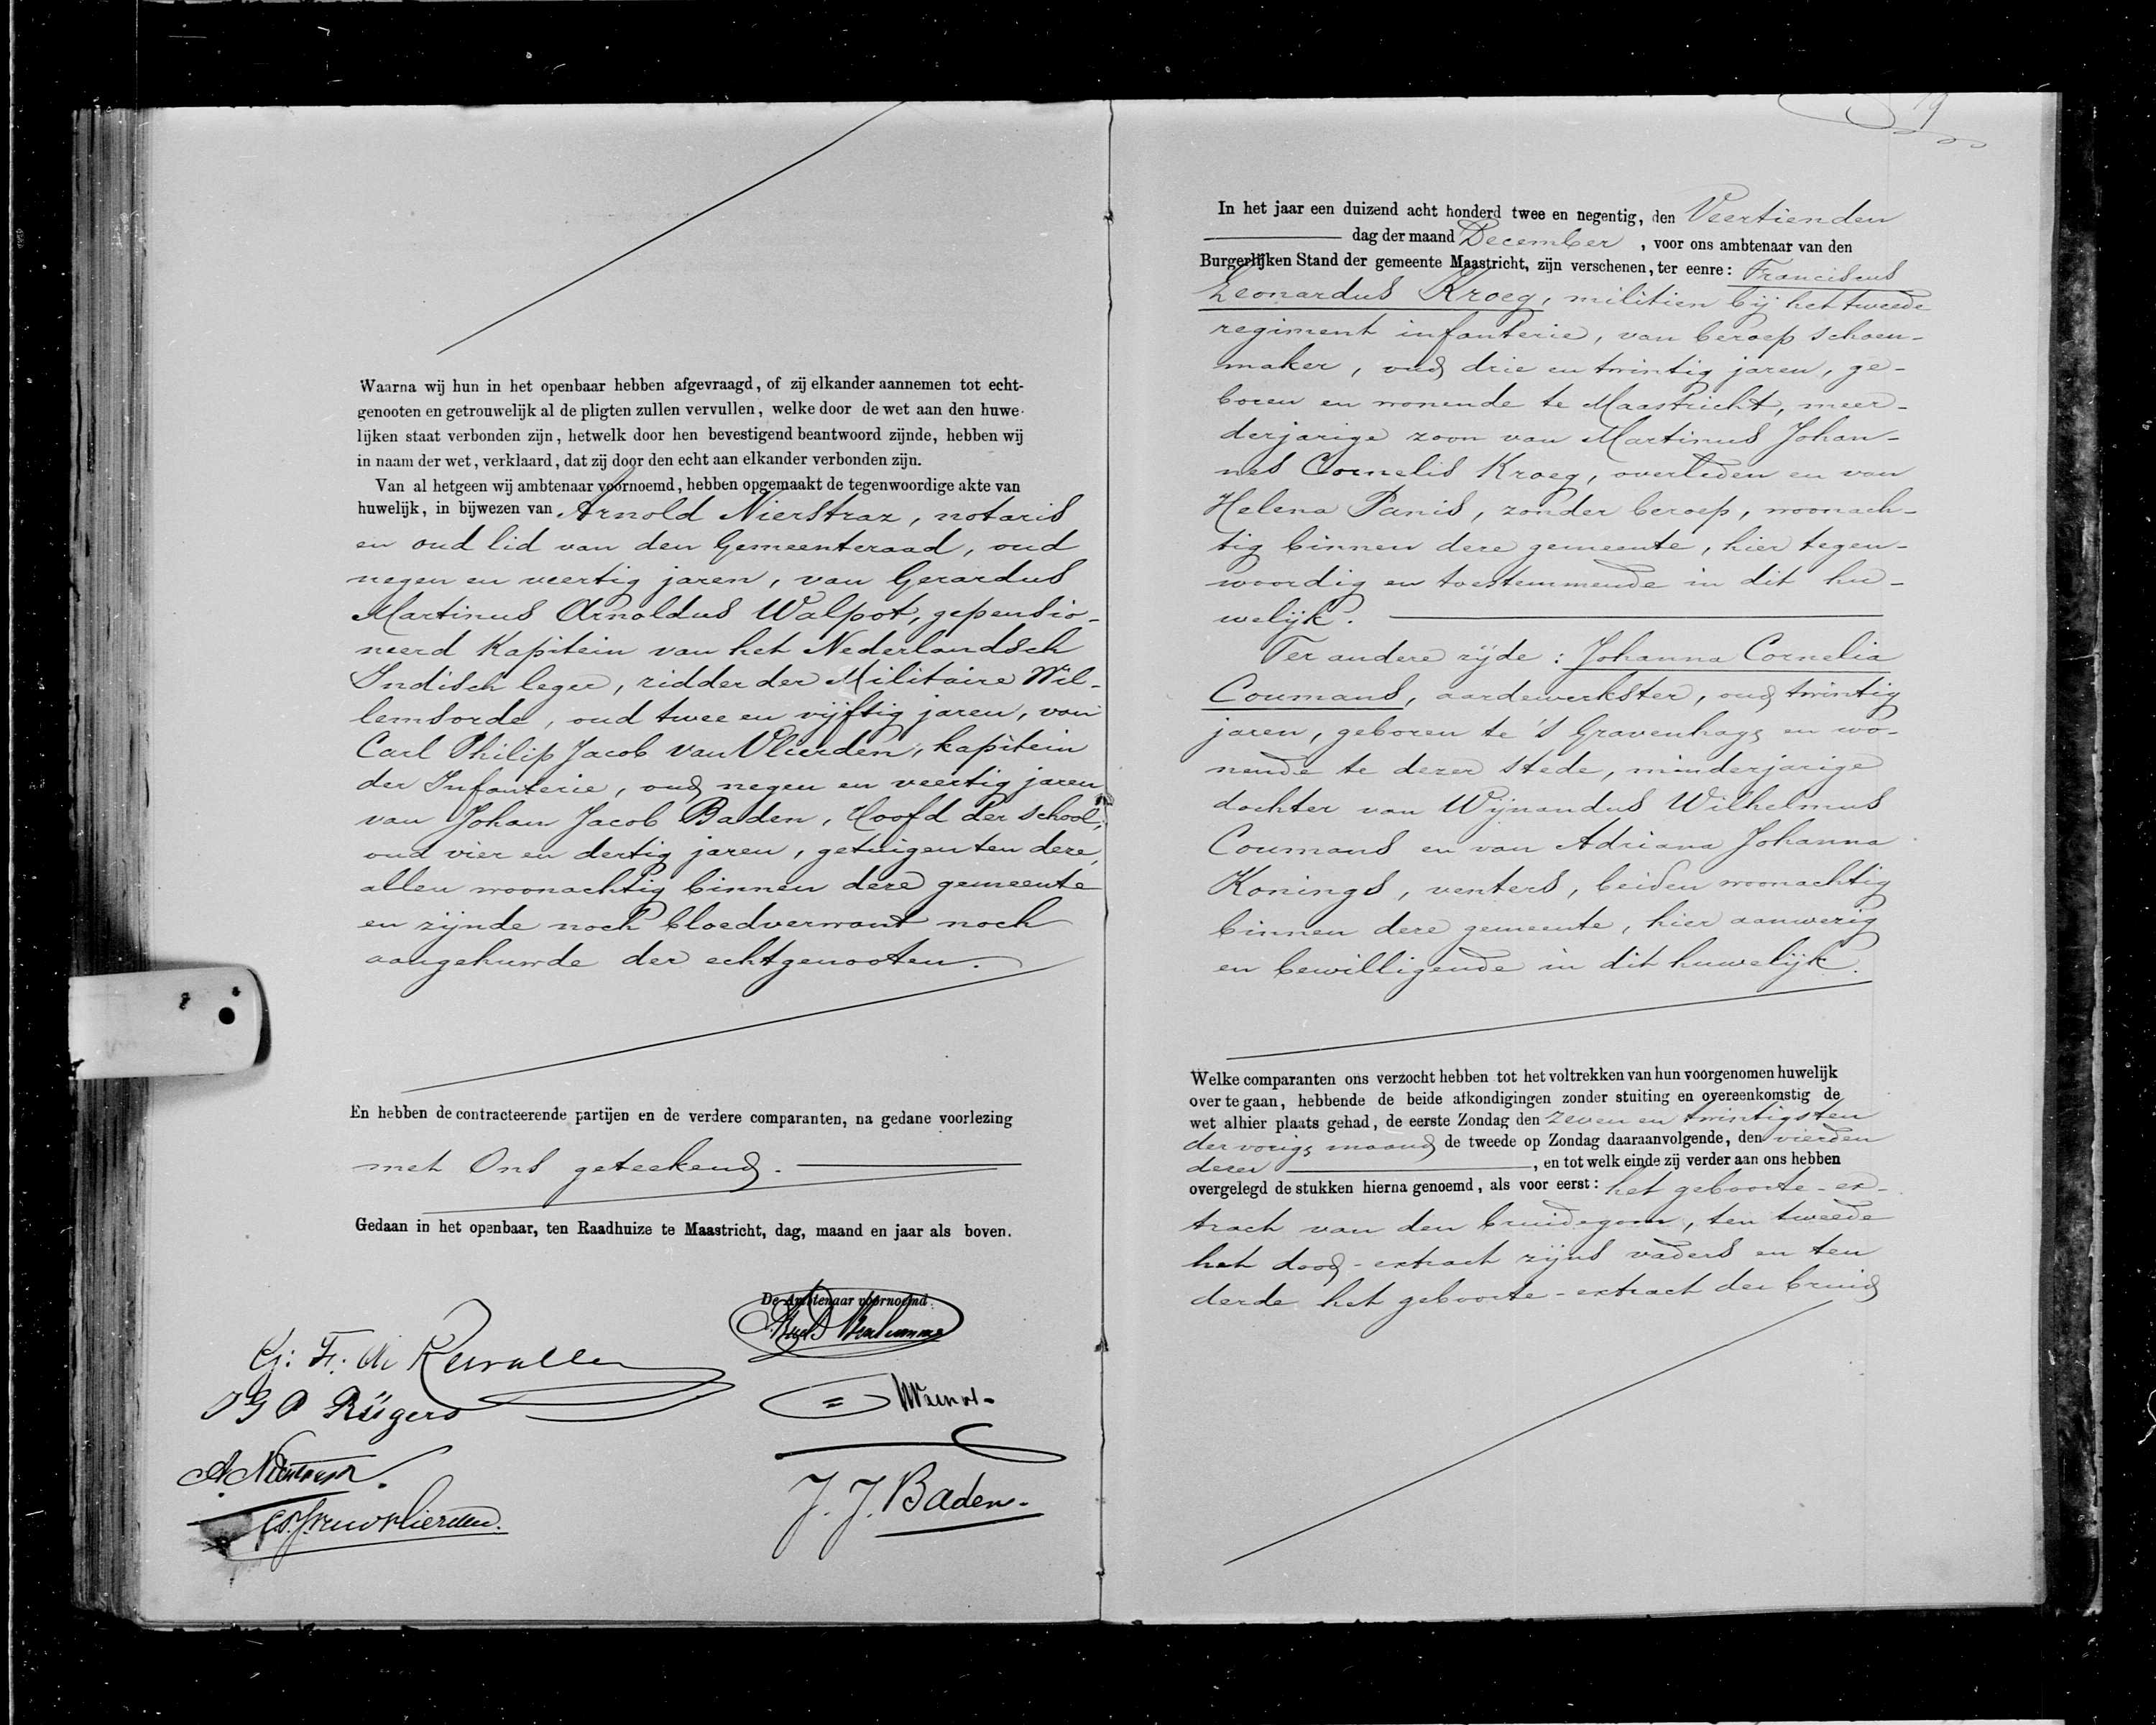 Waarna wij hun in het openbaar hebben afgevraagd, of zij elkander aannemen tot echt-
genooten en getrouwelijk al de pligten zullen vervullen, welke door de wet aan den huwe-
lijken staat verbonden zijn, hetwelk door hen bevestigend beantwoord zijnde, hebben wij
in naam der wet, verklaard, dat zij door den echt aan elkander verbonden zijn.
Van al hetgeen wij ambtenaar voornoemd, hebben opgemaakt de tegenwoordige akte van
huwelijk, in bijwezen van Arnold Nierstraz, notaris
en oud lid van den Gemeenteraad, oud
negen en veertig jaren, van Gerardus
Martinus Arnoldus Walpot, gepensio-
neerd Kapitein van het Nederlandsch
Indisch leger, ridder der Militaire Wil-
lemsorde, oud twee en vijftig jaren, van
Carl Philip Jacob van Vlierden, kapitein
der Infanterie, oud negen en veertig jaren
van Johan Jacob Baden, Hoofd der school,
oud vier en dertig jaren, getuigen ten deze,
allen woonachtig binnen deze gemeente
en zijnde noch bloedverwant noch
aangehuwde der echtgenooten.
En hebben de contracteerende partijen en de verdere comparanten, na gedane voorlezing
met Ons geteekend.
Gedaan in het openbaar, ten Raadhuize te Maastricht, dag, maand en jaar als boven.
De Ambtenaar voornoemd.
G: F. de
J G P Rügers
A. Nierstrasz
van Vlierden.
J. J. Baden.
9
In het jaar een duizend acht honderd twee en negentig, den Veertienden
dag der maand December, voor ons ambtenaar van den
Burgerlijken Stand der gemeente Maastricht, zijn verschenen, ter eenre: Franciscus
Leonardus Kroeg, militien bij het tweede
regiment infanterie, van beroep schoen-
maker, oud drie en twintig jaren, ge-
boren en wonende te Maastricht, meer-
derjarige zoon van Martinus Johan-
nes Cornelis Kroeg, overleden en van
Helena Panis, zonder beroep, woonach-
tig binnen deze gemeente, hier tegen-
woordig en toestemmende in dit hu-
welijk.
Ter andere zijde: Johanna Cornelia
Coumans, aardewerkster, oud twintig
jaren, geboren te 's Gravenhage en wo-
nende te dezer stede, minderjarige
dochter van Wijnandus Wilhelmus
Coumans en van Adriana Johanna
Konings, venters, beiden woonachtig
binnen deze gemeente, hier aanwezig
en bewilligende in dit huwelijk.
Welke comparanten ons verzocht hebben tot het voltrekken van hun voorgenomen huwelijk
over te gaan, hebbende de beide afkondigingen zonder stuiting en overeenkomstig de
wet alhier plaats gehad, de eerste Zondag den zeven en twintigsten
der vorige maand de tweede op Zondag daaraanvolgende, den vierden
dezer, en tot welk einde zij verder aan ons hebben
overgelegd de stukken hierna genoemd, als voor eerst: het geboorte-ex-
tract van den bruidegom, ten tweede
het dood-extract zijns vaders en ten
derde het geboorte-extract der bruid